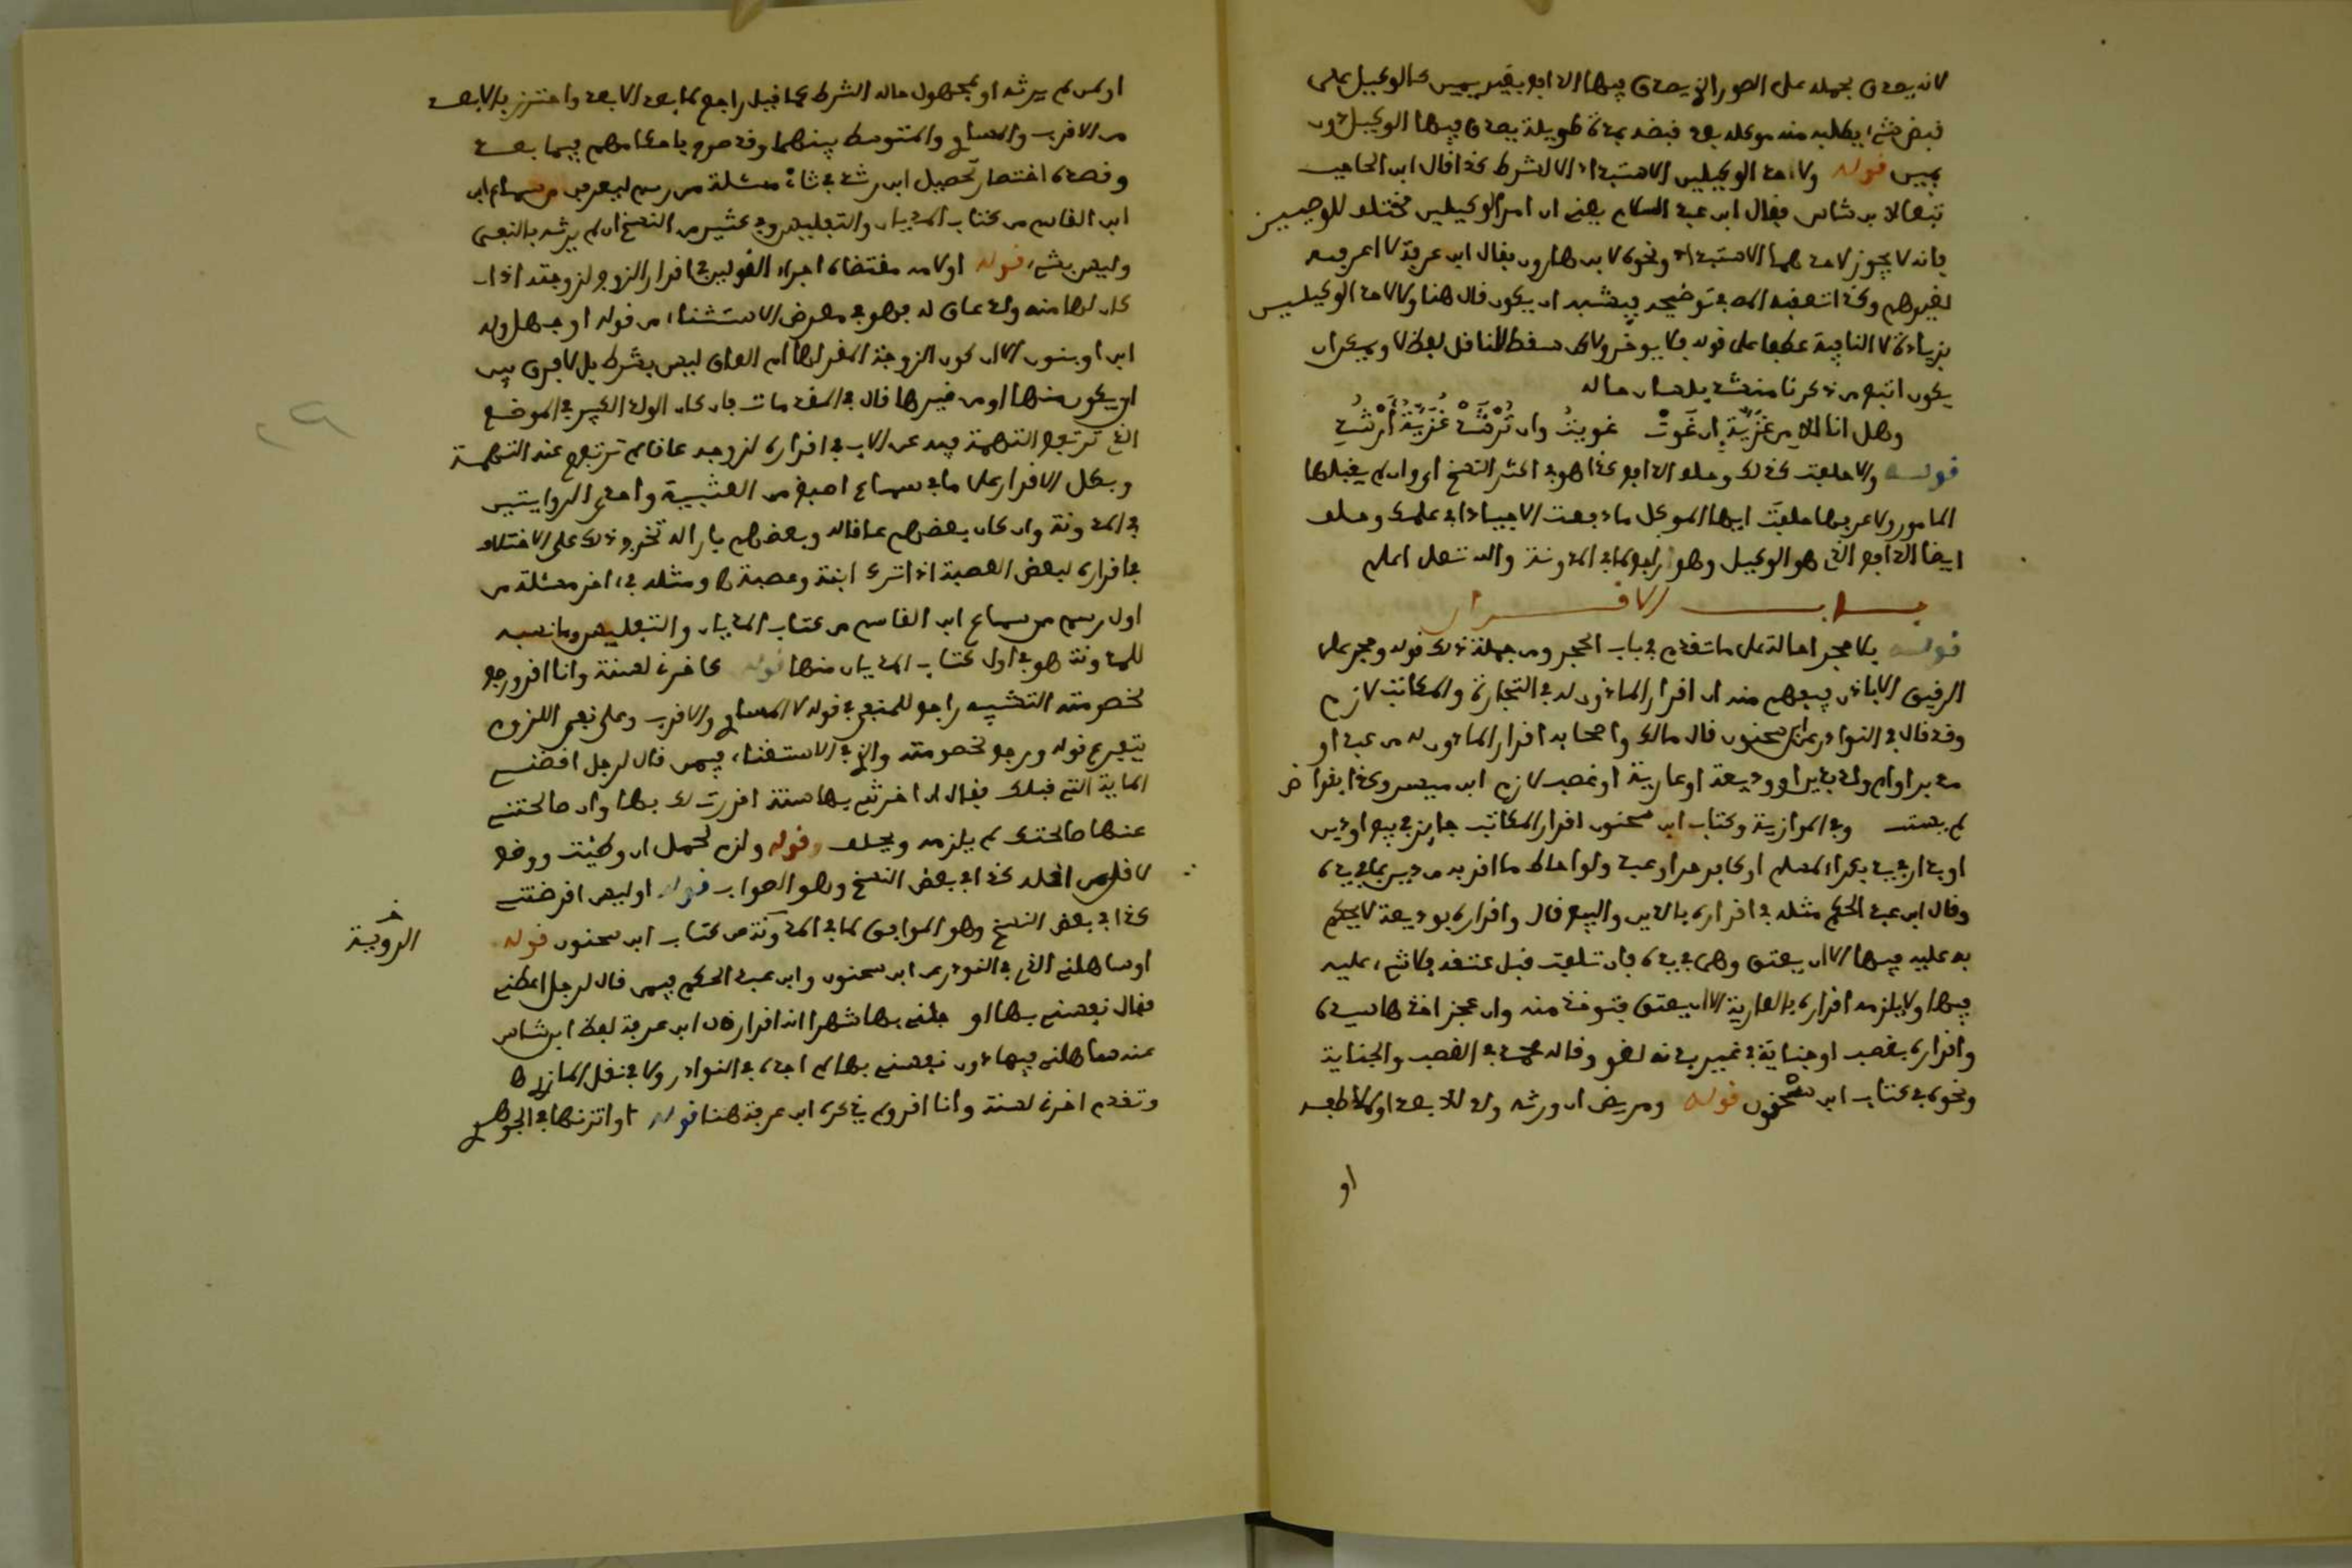 لانه يصدق بحمله على الصور التي يصدق فيها الدافع بغير يمين كالوكيل على
قبض شيء يطلبه منه موكله بعد قبضه بمدة طويلة يصدق فيها الوكيل دون
يمين قوله ولاحد الوكيلين الاستبداد الا لشرط كذا قال ابن الحاجب
تبعا لابن شاس فقال ابن عبد السلام يعني ان امر الوكيلين مختلف للوصيين
فانه لا يجوز لاحدهما الاستبداد ونحوه لابن هارون فقال ابن عرفة لا اعرفه
لغيرهم وكذا تعقبه المص في توضيحه فيشبه ان يكون قال هنا ولا لاحد الوكيلين
بزيادة لا النافية عطفا على قوله فلا يوخر ولاكن سقط للناقل لفظ لا ويمكن ان
يكون اتبع من ذكرنا منشدا بلسان حاله
وهل انا الا من غزية ان غوت غويت وان ترشد غزية ارشد
قوله والا حلفت كذلك وحلف الدافع كذا هو في اكثر النسخ اي وان لم يقبلها
المامور ولا عرفها حلفت ايها الموكل ما دفعت الا جيادا في علمك وحلف
ايضا الدافع الذي هو الوكيل وهو راجع لما في المدونة والله تعلى اعلم
باب الاقرار
قوله بلا حجر احالة على ما تقدم في باب الحجر ومن جملة ذلك قوله وحجر على
الرقيق الا باذن فيفهم منه ان اقرار الماذون له في التجارة والمكاتب لازم
وقد قال في النوادر عن ابن سحنون قال مالك واصحابه اقرار الماذون له من عبد او
مدبر او ام ولد بدين او وديعة او عارية او غصب لازم ابن ميسر وكذا بقراض
لم يعتد وفي الموازية وكتاب ابن سحنون اقرار المكاتب جايز في بيع او دين
او بدار في يده بكراء لمسلم او كافر حر او عبد ولو احاط ما اقر به من دين بما في يده
وقال ابن عبد الحكم مثله في اقراره بالدين والبيع قال واقراره بوديعة لا يحكم
به عليه فيها الا ان يعتق وهي في يده فان تلفت قبل عتقه فلا شيء عليه
فيها ولا يلزمه اقراره بالعارية الا ان يعتق فتوخذ منه وان عجز اخذها سيده
واقراره بغصب او جناية في غير بدنه لغو وقاله محمد في الغصب والجناية
ونحوه في كتاب ابن سحنون قوله ومريض ان ورثه ولد للابعد او لملاطفه
او
او من لم يرثه او لمجهول حاله الشرط كما قبل راجع لما بعد الابعد واحترز بالابعد
من الاقرب والمساوي والمتوسط بينهما وقد صرح باحكامهم فيما بعد
وقصده اختصار تحصيل ابن رشد في ثاني مسئلة من رسم ليعرفن من سماع ابن
ابن القاسم من كتاب المديان والتفليس وفي كثير من النسخ ان لم يرثه بالنفي
وليس بشيء قوله او لامه مقتضاه اجراء القولين في اقرار الزوج لزوجته اذا
كان لها منه ولد عاق له فهو في معرض الاستثناء من قوله او جهل وله
ابن او بنون الا ان كون الزوجة المقر لها ام العاق ليس بشرط بل لا فرق بين
ان يكون منها او من غيرها قال في المقدمات فان كان الولد الكبير في الموضع
الذي ترتفع التهمة فيه عن الاب في اقراره لزوجه عاقا لم ترتفع عنه التهمة
وبطل الاقرار على ما في سماع اصبغ من العتبية واحدى الروايتين
في المدونة وان كان بعضهم عاقا له وبعضهم بارا له تخرج ذلك على الاختلاف
في اقراره لبعض العصبة اذا ترك ابنة وعصبة ها ومثله في اخر مسئلة من
اول رسم من سماع ابن القاسم من كتاب المديان والتفليس وما نسبه
للمدونة هو في اول كتاب المديان منها قوله كاخرني لسنة وانا اقر ورجع
لخصومته التشبيه راجع للمنفي في قوله لا المساوي والاقرب وعلى نفي اللزوم
يتفرع قوله ورجع لخصومته والذي في الاستغناء فيمن قال لرجل اقضني
الماية التي قبلك فقال ان اخرتني بها سنة اقررت لك بها وان صالحتني
عنها صالحتك لم يلزمه ويحلف وقوله ولزم لحمل ان وطئت ووضع
لاقل من اقله كذا في بعض النسخ وهو الصواب قوله او ليس اقرضتني
كذا في بعض النسخ وهو الموافق لما في المدونة من كتاب ابن سحنون قوله
او ساهلني الذي في النوادر عن ابن سحنون وابن عبد الحكم فيمن قال لرجل اعطني
فقال نفسني بها او جلني بها شهرا انه اقرار قال ابن عرفة لفظ ابن شاس
عنه ساهلني فيها دون نفسني بها لم اجده في النوادر ولا في نقل المازري ها
وتقدم اخرني لسنة وانا اقر ولم يذكره ابن عرفة هنا قوله او اتزنها في الجواهر
خ
الروية